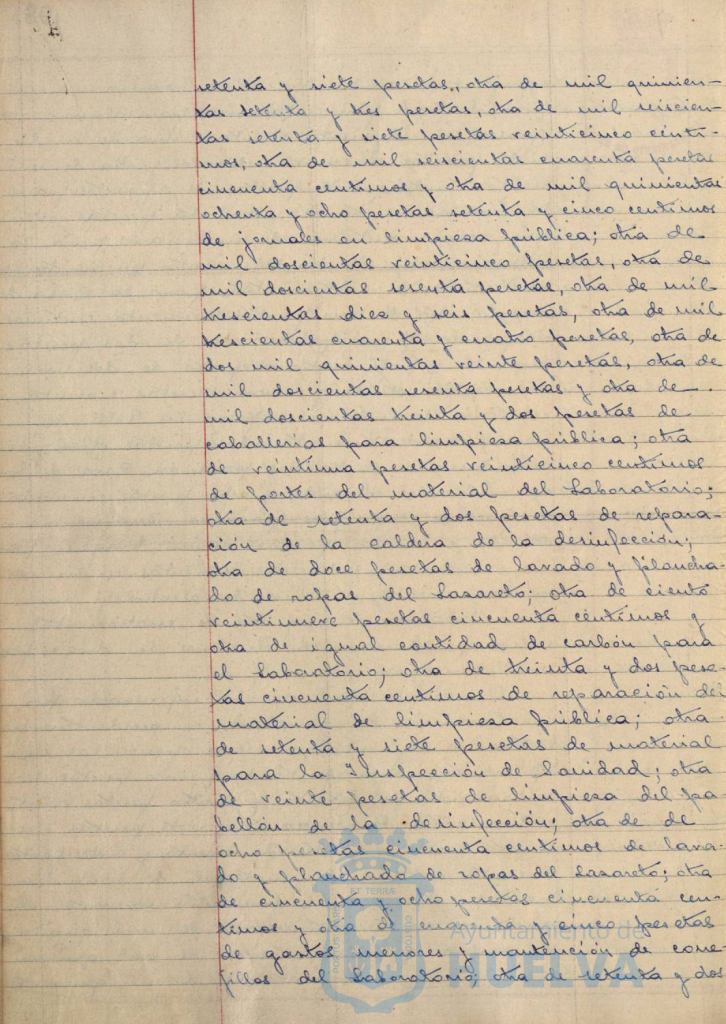 setenta y siete pesetas., otra de mil quinien-
tas setenta y tres pesetas, otra de mil seiscien-
tas setenta y siete pesetas veinticinco cénti-
mos, otra de mil seiscientas cuarenta pesetas
cincuenta centimos y otra de mil quinientas
ochenta y ocho pesetas setenta y cinco centimos
de jornales en limpieza pública; otra de
mil doscientas veinticinco pesetas, otra de
mil doscientas sesenta pesetas, otra de mil
trescientas diez y seis pesetas, otra de mil
trescientas cuarenta y cuatro pesetas, otra de
dos mil quinientas veinte pesetas, otra de
mil doscientas sesenta pesetas y otra de
mil doscientas treinta y dos pesetas de
caballerias para limpieza pública; otra
de veintiuna pesetas veinticinco centimos
de portes del material del Laboratorio;
otra de setenta y dos pesetas de repara-
ción de la caldera de la desinfección;
otra de doce pesetas de lavado y plancha-
do de ropas del Lazareto; otra de ciento
veintinueve pesetas cincuenta centimos y
otra de igual cantidad de carbón para
el Laboratorio; otra de treinta y dos pese-
tas cincuenta centimos de reparación del
material de limpieza pública; otra
de setenta y siete pesetas de material
para la Inspección de Sanidad; otra
de veinte pesetas de limpieza del pa-
bellón de la desinfección; otra de de
ocho pesetas cincuenta centimos de lava-
do y planchado de ropas del Lazareto; otra
de cincuenta y ocho pesetas cincuenta cen-
timos y otra de cuarenta y cinco pesetas
de gastos menores y mantención de cone-
jillos del Laboratorio; otra de setenta y dos
Ayuntamiento de
HUELVA